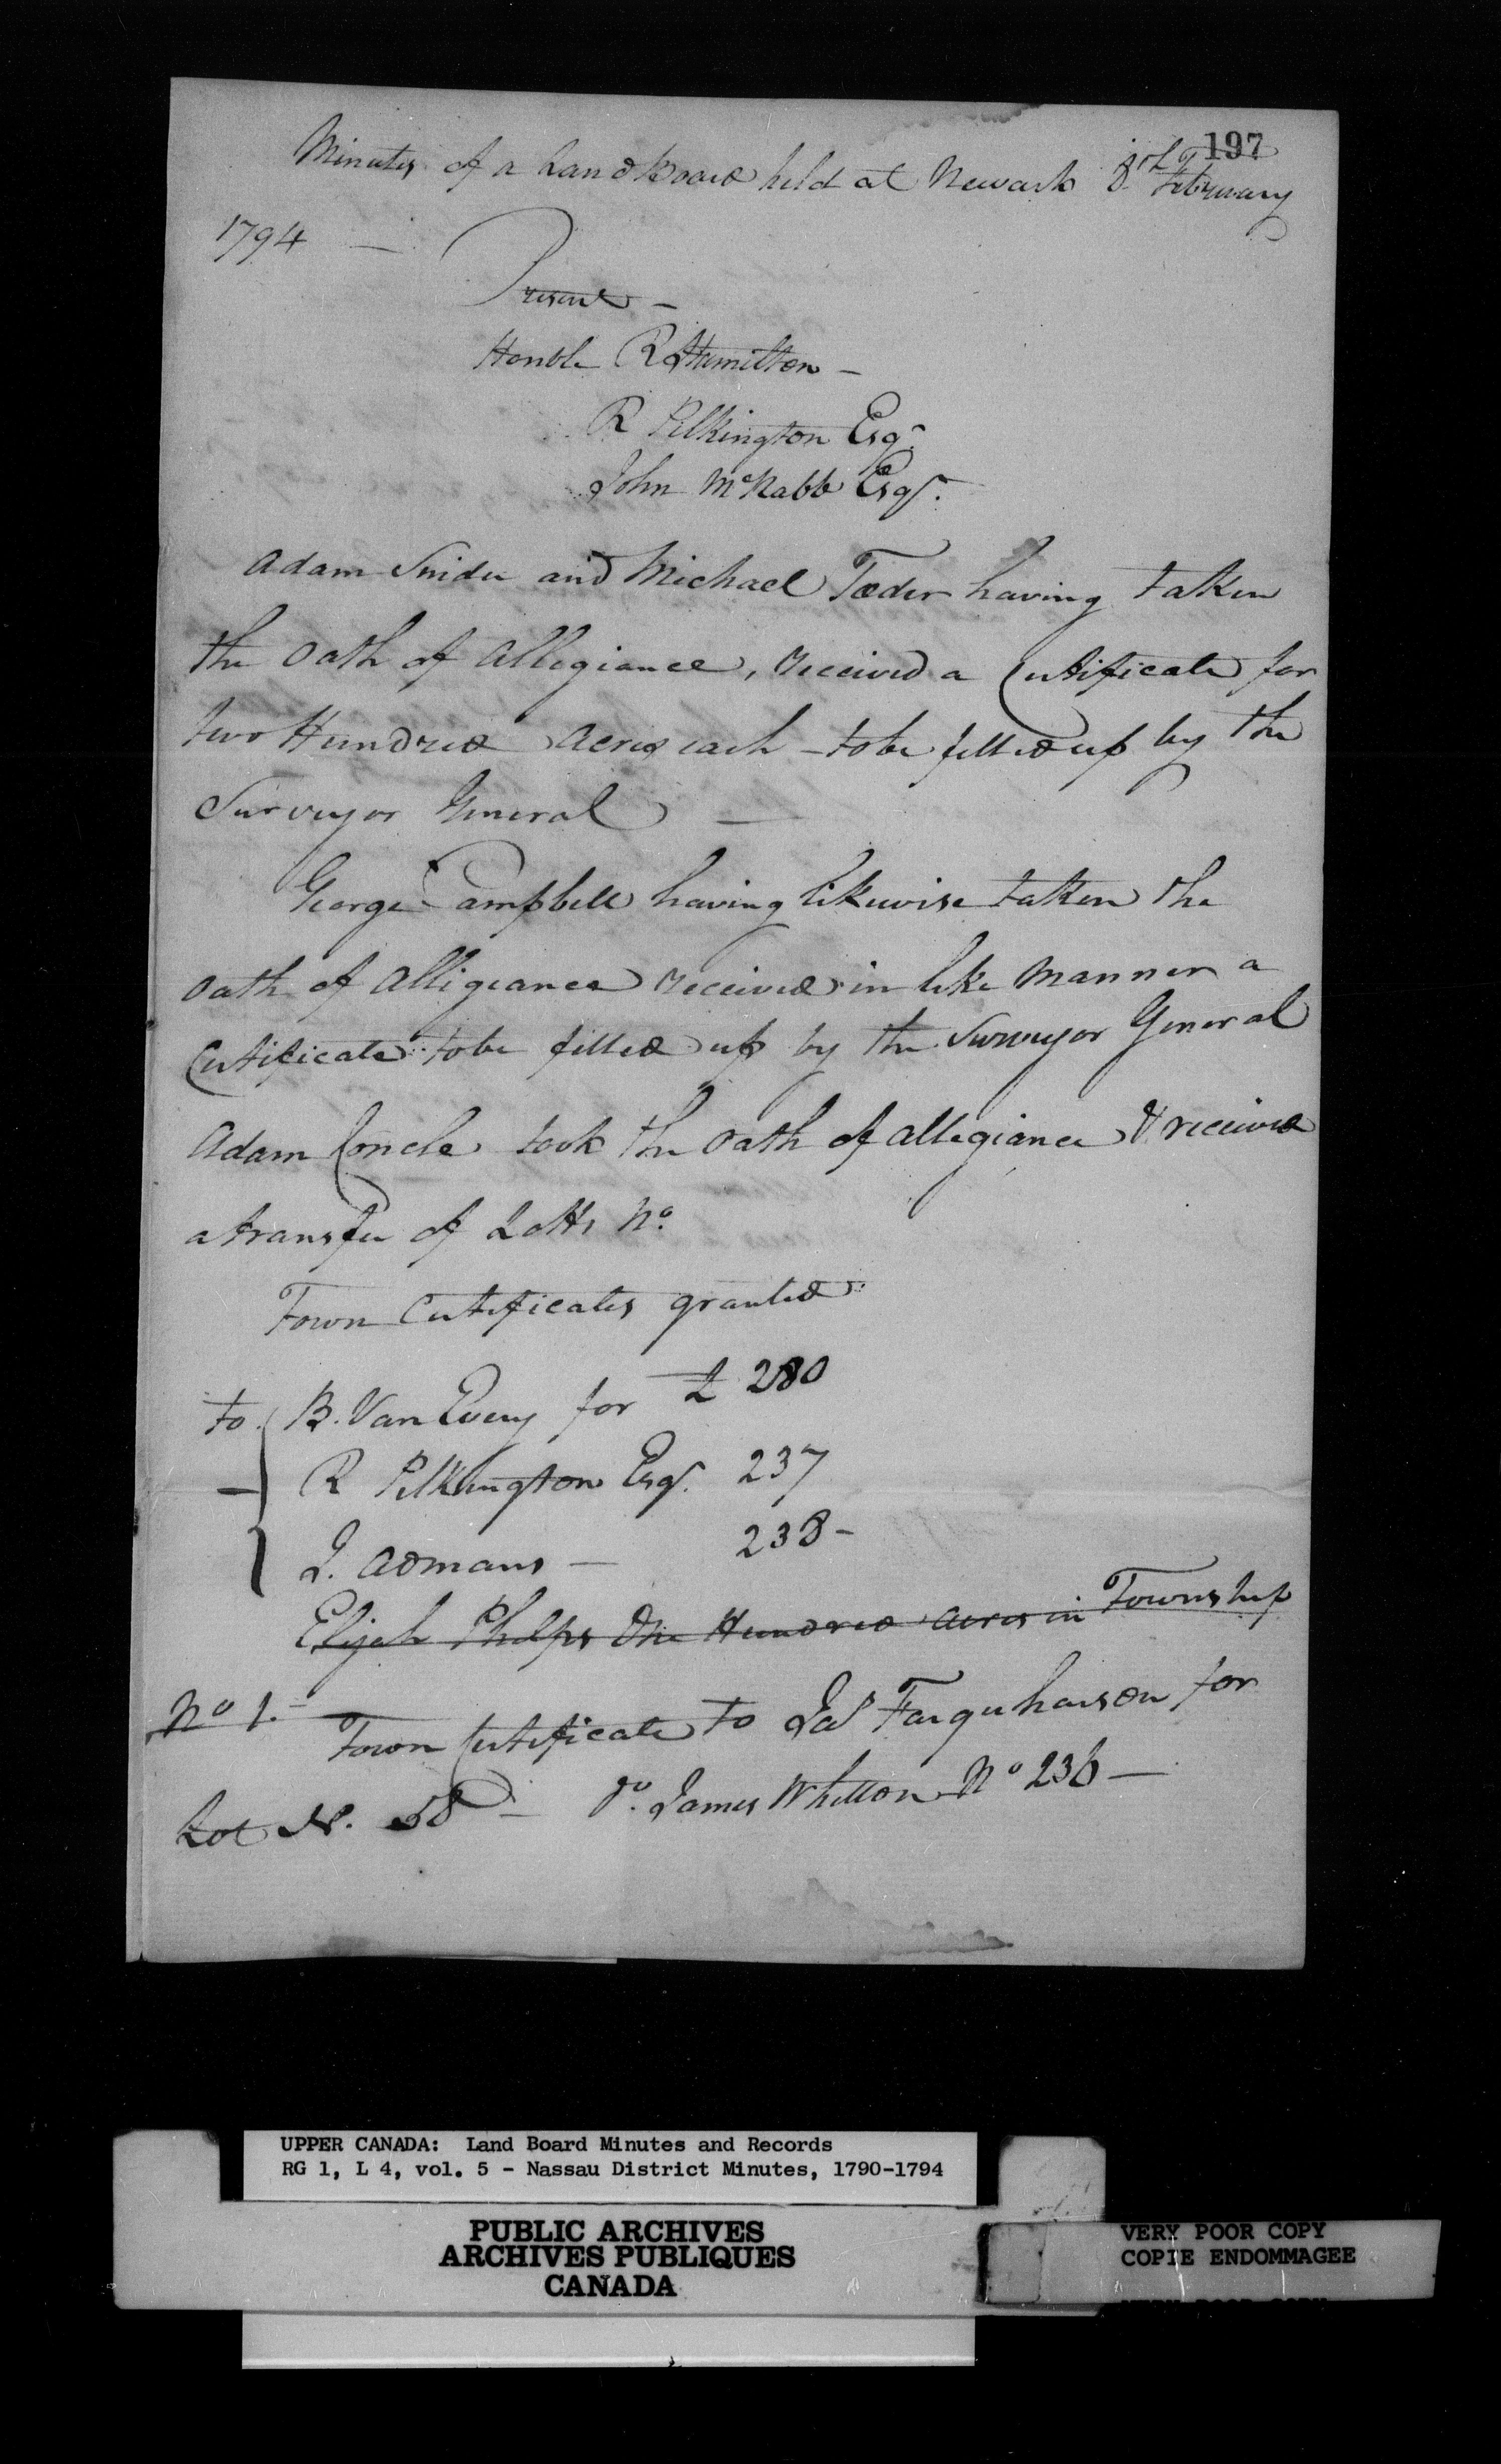 197
Minutes of a Land Board held at Newark 8th February
1794 —
Present —
Honble R Hamilton —
R Pilkington Esqr.
John McNabb Esqr.
Adam Snider and Michael Tæder having taken
the Oath of Allegiance, received a Certificate for
two Hundred acres each — to be filled up by the
Surveyor General —
George Campbell having likewise taken the
Oath of Alligeance received in like manner a
Certificate to be filled up by the Surveyor General
Adam Concle took the Oath of allegiance & received
a transfer of Lotts No.
Town Certificates granted
to B. Van Every for L 280
R Pilkington Esqr. 237
J. Admans — 238 -
Elijah Phelps One Hundred acres in Township
No 1. —
Town Certificate to Jas Farquharson for
Lot N. 58 — Do. James Whitton No 236 —
UPPER CANADA: Land Board Minutes and Records
RG 1, L 4, vol. 5 - Nassau District Minutes, 1790-1794
PUBLIC ARCHIVES
ARCHIVES PUBLIQUES
CANADA
VERY POOR COPY
COPIE ENDOMMAGEE